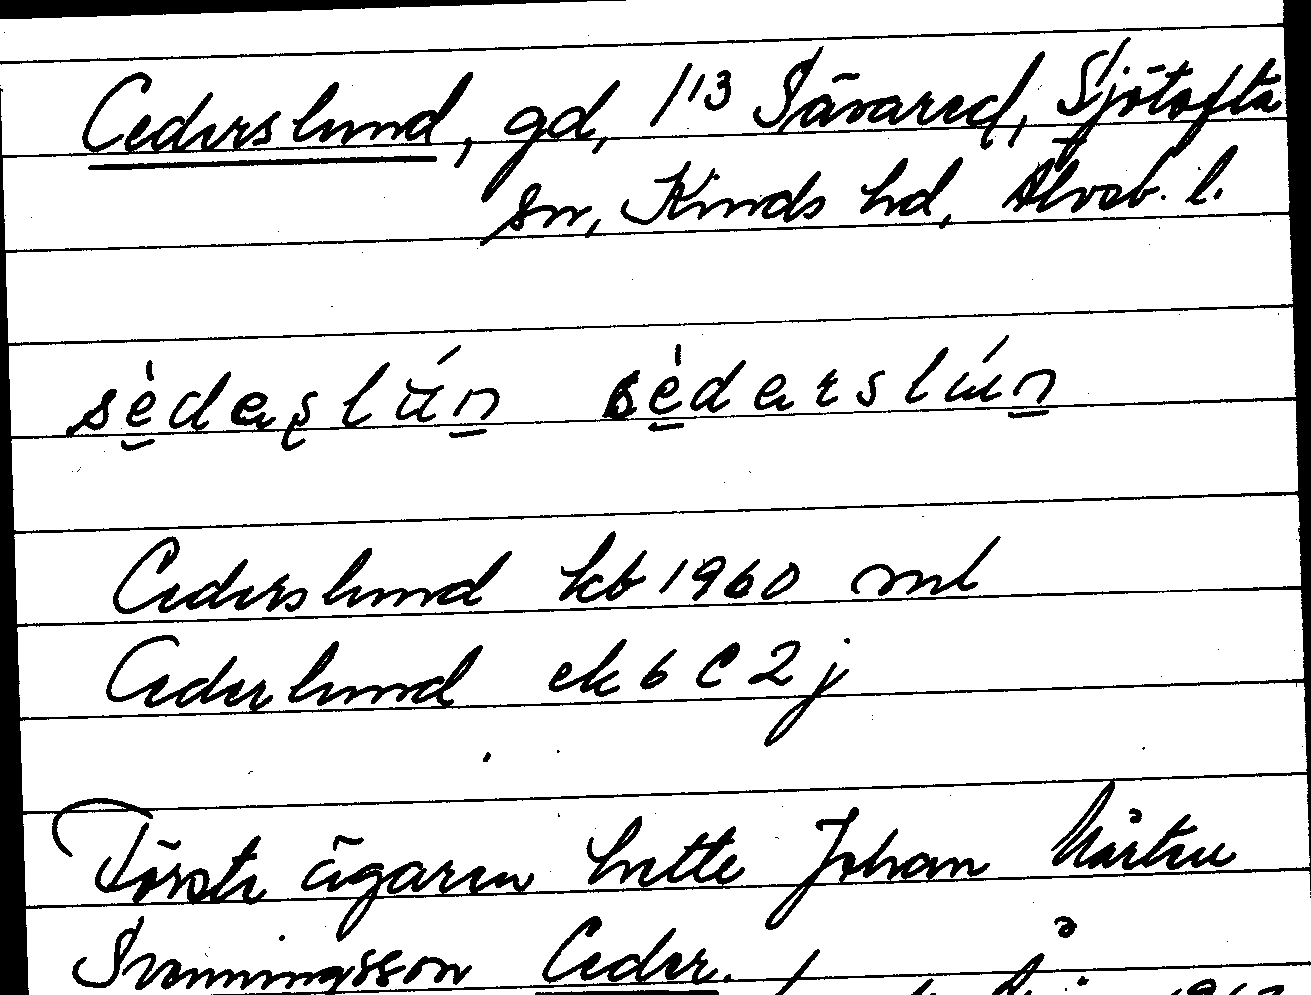 Cederslund, gd, 1/13 Sävared, Sjötofta
sn, Kinds hd, Älvsb. l.
sèdeslún sèderslún
Cederslund kb 1960 ml
Cederlund ek 6 C 2 j
Förste ägaren hette Johan Mårten
Svenningsson Ceder.